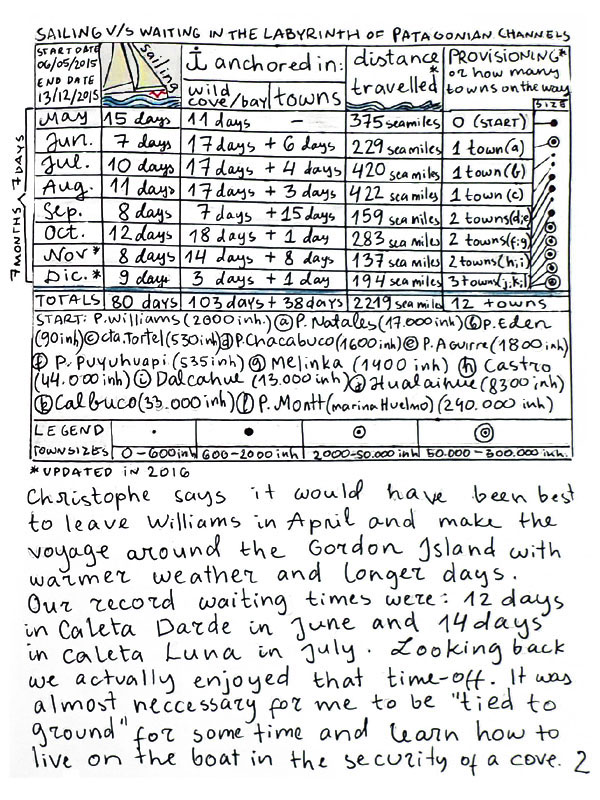 SAILING V/S WAITING IN THE LABYRINTH OF PATAGONIAN CHANNELS
START DATE 06/05/2015 END DATE 13/12/2015
sailing
anchored in: wild cove/bay towns
distance travelled*
PROVISIONING* or how many towns on the way
SIZE
7 MONTHS 7 DAYS
May 15 days 11 days - 375 seamiles 0 (START)
Jun. 7 days 17 days + 6 days 229 sea miles 1 town (a)
Jul. 10 days 17 days + 4 days 420 sea miles 1 town (b)
Aug. 11 days 17 days + 3 days 422 sea miles 1 town (c)
Sep. 8 days 7 days + 15 days 159 sea miles 2 towns (d;e)
Oct. 12 days 18 days + 1 day 283 sea miles 2 towns (f;g)
Nov* 8 days 14 days + 8 days 137 sea miles 2 towns (h;i)
Dic.* 9 days 3 days + 1 day 194 sea miles 3 towns (j,k,l)
TOTALS 80 days 103 days + 38 days 2219 sea miles 12 towns
START: P. Williams (2000 inh.) ⓐ P. Natales (17.000 inh) ⓑ P. Eden
(90 inh) ⓒ cta. Tortel (530 inh) ⓓ P. Chacabuco (1600 inh) ⓔ P. Aguirre (1800 inh)
ⓕ P. Puyuhuapi (535 inh) ⓖ Melinka (1400 inh) ⓗ Castro
(44.000 inh) ⓘ Dalcahue (13.000 inh) ⓙ Hualaihue (8300 inh)
ⓚ Calbuco (33.000 inh) ⓛ P. Montt (marina Huelmo) (240.000 inh)
LEGEND
TOWNSIZES 0-600 inh 600-2000 inh 2000-50.000 inh 50.000-300.000 inh.
* UPDATED IN 2016
Christophe says it would have been best
to leave Williams in April and make the
voyage around the Gordon Island with
warmer weather and longer days.
Our record waiting times were: 12 days
in Caleta Darde in June and 14 days
in Caleta Luna in July. Looking back
we actually enjoyed that time-off. It was
almost neccessary for me to be "tied to
ground" for some time and learn how to
live on the boat in the security of a cove. 2